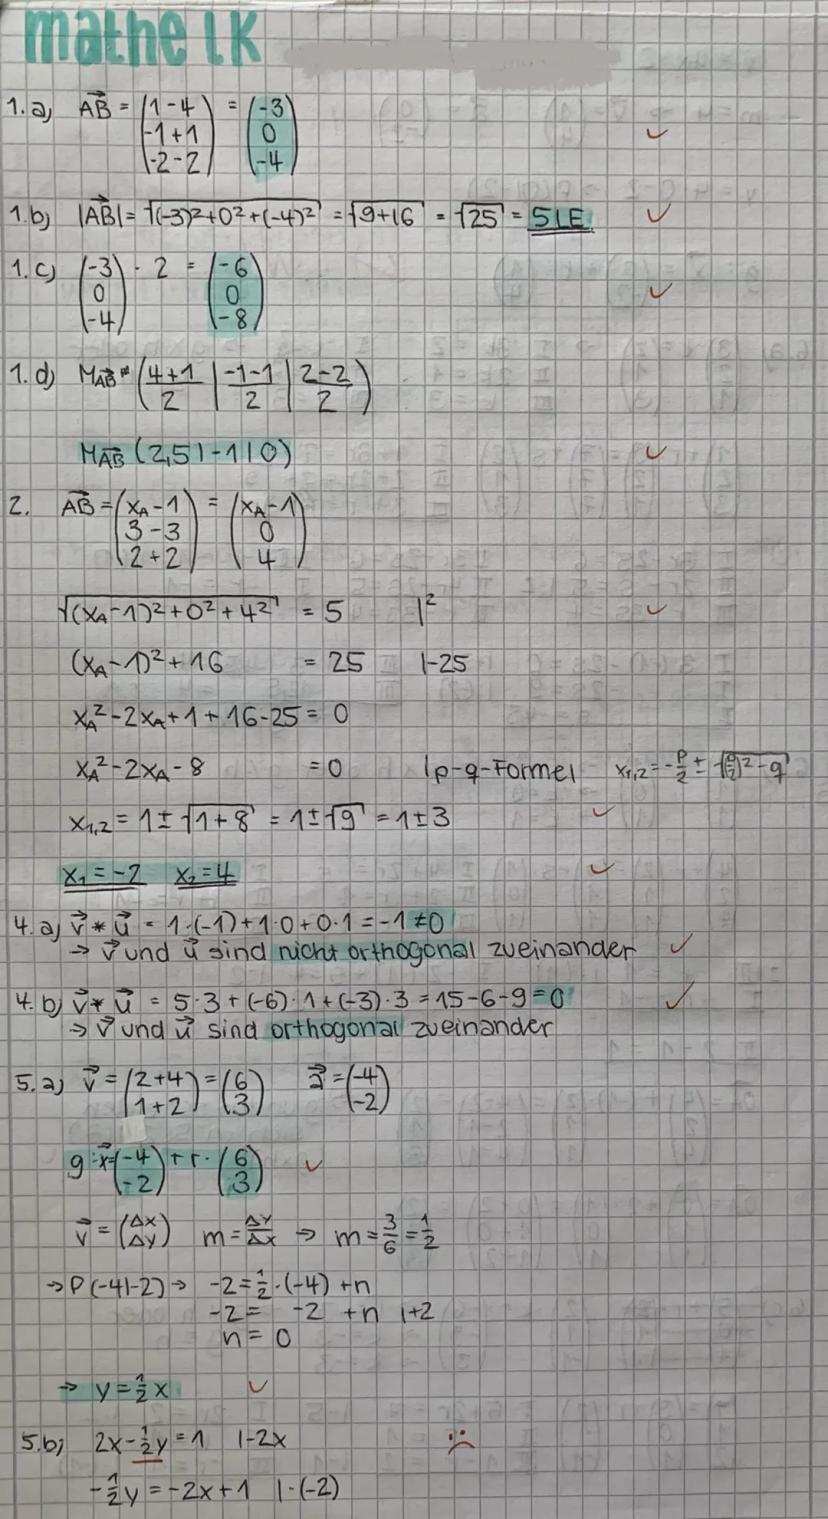 mathe LK
1.a) AB⃗ = (1-4 / -1+1 / -2-2) = (-3 / 0 / -4)
1.b) |AB⃗| = √((-3)²+0²+(-4)²) = √(9+16) = √25 = 5LE
1.c) (-3 / 0 / -4) · 2 = (-6 / 0 / -8)
1.d) M_AB⃗ = ((4+1)/2 | (-1-1)/2 | (2-2)/2)
M_AB⃗ (2,5|-1|0)
2. AB⃗ = (x_A-1 / 3-3 / 2+2) = (x_A-1 / 0 / 4)
√((x_A-1)²+0²+4²) = 5 |²
(x_A-1)²+16 = 25 |-25
x_A²-2x_A+1+16-25 = 0
x_A²-2x_A-8 = 0 |p-q-Formel x₁,₂ = -p/2 ± √((p/2)²-q)
x₁,₂ = 1±√(1+8) = 1±√9 = 1±3
x₁=-2 x₂=4
4.a) v⃗ * u⃗ = 1·(-1)+1·0+0·1 = -1 ≠0
→ v⃗ und u⃗ sind nicht orthogonal zueinander
4.b) v⃗ * u⃗ = 5·3+(-6)·1+(-3)·3 = 15-6-9 = 0
→ v⃗ und u⃗ sind orthogonal zueinander
5.a) v⃗ = (2+4 / 1+2) = (6 / 3) a⃗ = (-4 / -2)
g: x⃗ = (-4 / -2) + r · (6 / 3)
v⃗ = (Δx / Δy) m = Δy/Δx → m = 3/6 = 1/2
→ P(-4|-2) → -2 = 1/2·(-4) +n
-2 = -2 +n |+2
n = 0
→ y = 1/2 x
5.b) 2x-1/2y = 1 |-2x
-1/2y = -2x+1 |·(-2)